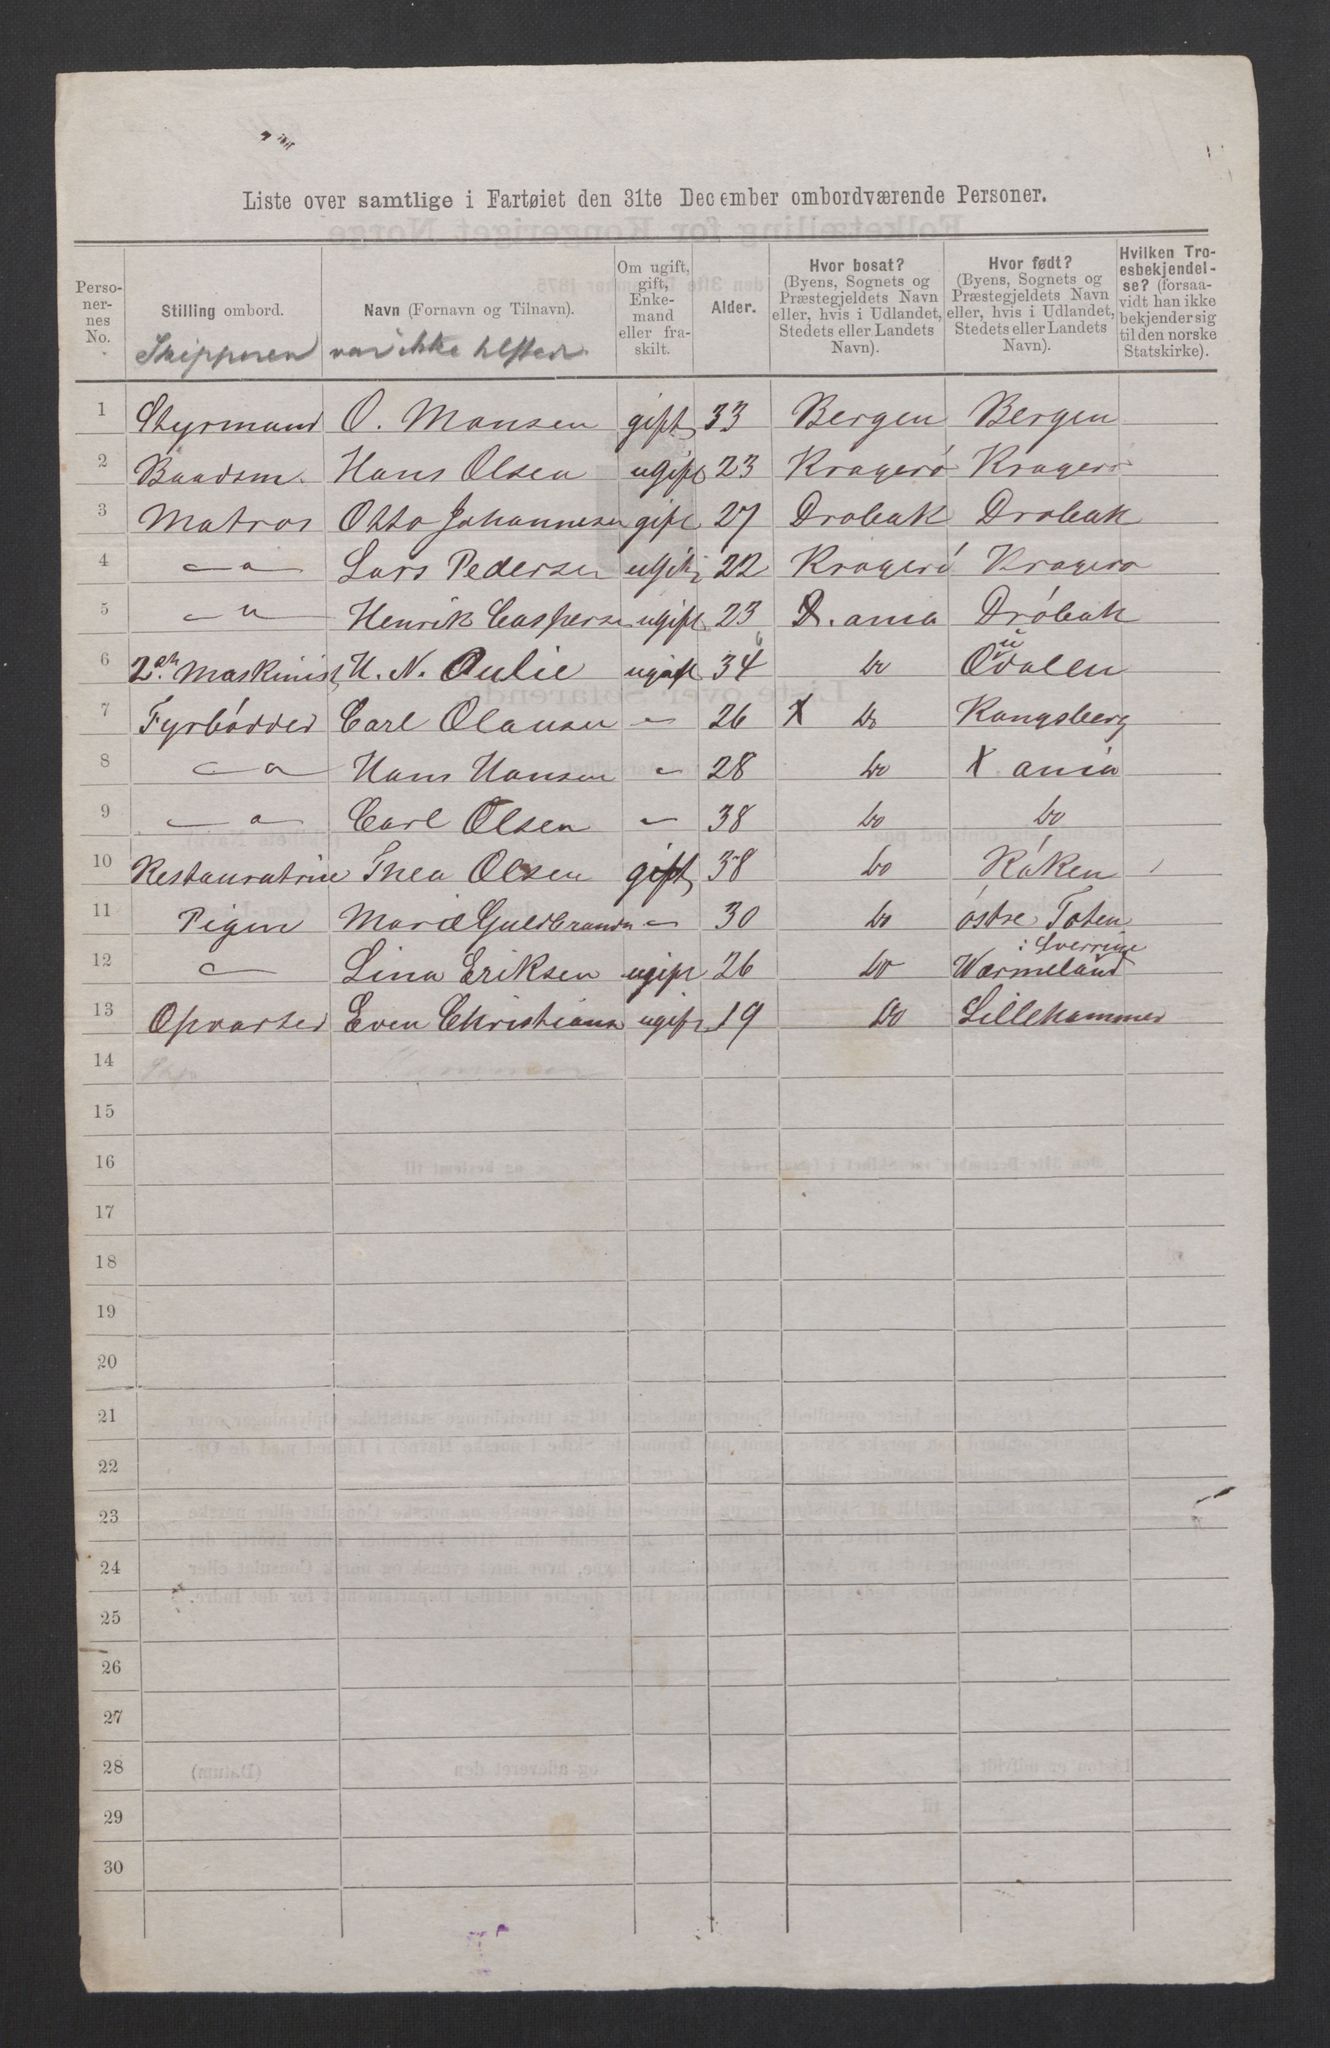 Liste over samtlige i Fartøiet den 31te December ombordværende Personer.
Perso-nernes No. | Stilling ombord. | Navn (Fornavn og Tilnavn). | Om ugift, gift, Enke-mand eller fra-skilt. | Alder. | Hvor bosat? (Byens, Sognets og Præstegjeldets Navn eller, hvis i Udlandet, Stedets eller Landets Navn). | Hvor født? (Byens, Sognets og Præstegjeldets Navn eller, hvis i Udlandet, Stedets eller Landets Navn). | Hvilken Tro-esbekjendel-se? (forsaa-vidt han ikke bekjender sig til den norske Statskirke).
Skipperen var ikke tilstede
1 Styrmand O. Monsen gift 33 Bergen Bergen
2 Baadsm. Hans Olsen ugift 23 Kragerö Kragerö
3 Matros Otto Johannesen gift 27 Drobak Drobak
4 — " — Lars Pedersen ugift 22 Kragerö Kragero
5 — " — Henrik Caspersen ugift 23 X. ania Dröbak
6 2den Maskinist H. N. Aulie ugift 34 Do Odalen
7 Fyrbödder Carl Olausen " 26 X Do Kongsberg
8 — " — Hans Hansen " 28 Do X ania
9 — " — Carl Olsen " 38 Do Do
10 Restauratrise Thea Olsen gift 38 Do Röken
11 Pigen Marie Guldbrands " 30 Do östre Toten
12 " Lina Eriksen ugift 26 Do Wærmeland i Sverrige
13 Opvarter Even Christians ugift 19 Do Lillehammer
14
15
16
17
18
19
20
21
22
23
24
25
26
27
28
29
30